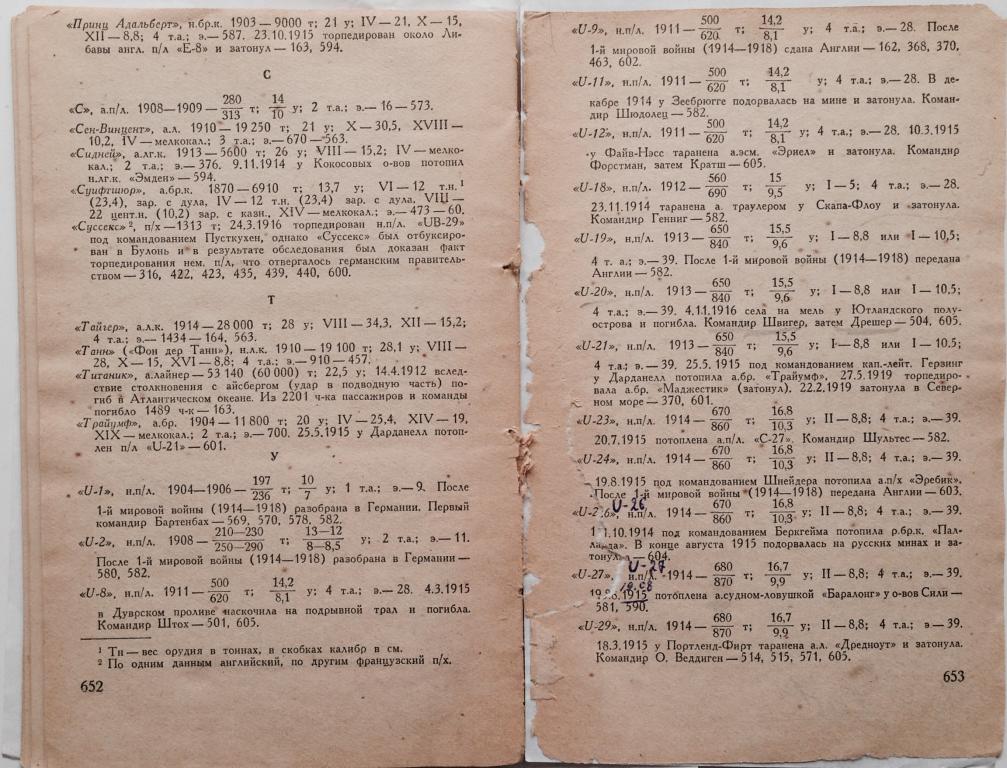 «Принц Адальберт», н.бр.к. 1903 — 9000 т; 21 у; IV — 21, X — 15,
XII — 8,8; 4 т.а.; э. — 587. 23.10.1915 торпедирован около Ли-
бавы англ. п/л «Е-8» и затонул — 163, 594.
С
«С», а.п/л. 1908—1909 — 280/313 т; 14/10 у; 2 т.а.; э. — 16 — 573.
«Сен-Винцент», а.л. 1910 — 19 250 т; 21 у; X — 30,5, XVIII —
10,2, IV — мелкокал.; 3 т.а.; э. — 670 — 563.
«Сидней», а.лг.к. 1913 — 5600 т; 26 у; VIII — 15,2; IV — мелко-
кал.; 2 т.а.; э. — 376. 9.11.1914 у Кокосовых о-вов потопил
н.лг.к. «Эмден» — 594.
«Суифтшюр», а.бр.к. 1870 — 6910 т; 13,7 у; VI — 12 т.н.¹
(23,4), зар. с дула, IV — 12 т.н. (23,4) зар. с дула, VIII —
22 цент.н. (10,2) зар. с казн., XIV — мелкокал.; э. — 473 — 60.
«Суссекс»², п/х — 1313 т; 24.3.1916 торпедирован н.п/л. «UB-29»
под командованием Пусткухен, однако «Суссекс» был отбуксиро-
ван в Булонь и в результате обследования был доказан факт
торпедирования нем. п/л, что отвергалось германским правитель-
ством — 316, 422, 423, 435, 439, 440, 600.
Т
«Тайгер», а.л.к. 1914 — 28 000 т; 28 у; VIII — 34,3, XII — 15,2;
4 т.а.; э. — 1434 — 164, 563.
«Танн» («Фон дер Танн»), н.л.к. 1910 — 19 100 т; 28,1 у; VIII —
28, X — 15, XVI — 8,8; 4 т.а.; э. — 910 — 457.
«Титаник», а.лайнер — 53 140 (60 000) т; 22,5 у; 14.4.1912 вслед-
ствие столкновения с айсбергом (удар в подводную часть) по-
гиб в Атлантическом океане. Из 2201 ч-ка пассажиров и команды
погибло 1489 ч-к — 163.
«Трайумф», а.бр. 1904 — 11 800 т; 20 у; IV — 25,4, XIV — 19,
XIX — мелкокал.; 2 т.а.; э. — 700. 25.5.1915 у Дарданелл потоп-
лен п/л «U-21» — 601.
У
«U-1», н.п/л. 1904—1906 — 197/236 т; 10/7 у; 1 т.а.; э. — 9. После
1-й мировой войны (1914—1918) разобрана в Германии. Первый
командир Бартенбах — 569, 570, 578, 582.
«U-2», н.п/л. 1908 — 210—230/250—290 т; 13—12/8—8,5 у; 2 т.а.; э. — 11.
После 1-й мировой войны (1914—1918) разобрана в Германии —
580, 582.
«U-8», н.п/л. 1911 — 500/620 т; 14,2/8,1 у; 4 т.а.; э. — 28. 4.3.1915
в Дуврском проливе наскочила на подрывной трал и погибла.
Командир Штох — 501, 605.
¹ Тн — вес орудия в тоннах, в скобках калибр в см.
² По одним данным английский, по другим французский п/х.
652
«U-9», н.п/л. 1911 — 500/620 т; 14,2/8,1 у; 4 т.а.; э. — 28. После
1-й мировой войны (1914—1918) сдана Англии — 162, 368, 370,
463, 602.
«U-11», н.п/л. 1911 — 500/620 т; 14,2/8,1 у; 4 т.а.; э. — 28. В де-
кабре 1914 у Зеебрюгге подорвалась на мине и затонула. Коман-
дир Шюдолец — 582.
«U-12», н.п/л. 1911 — 500/620 т; 14,2/8,1 у; 4 т.а.; э. — 28. 10.3.1915
у Файв-Нэсс таранена а.эсм. «Эриел» и затонула. Командир
Форстман, затем Кратш — 605.
«U-18», н.п/л. 1912 — 560/690 т; 15/9,5 у; I — 5; 4 т.а.; э. — 28.
23.11.1914 таранена а. траулером у Скапа-Флоу и затонула.
Командир Генниг — 582.
«U-19», н.п/л. 1913 — 650/840 т; 15,5/9,6 у; I — 8,8 или I — 10,5;
4 т. а.; э. — 39. После 1-й мировой войны (1914—1918) передана
Англии — 582.
«U-20», н.п/л. 1913 — 650/840 т; 15,5/9,6 у; I — 8,8 или I — 10,5;
4 т.а.; э. — 39. 4.11.1916 села на мель у Ютландского полу-
острова и погибла. Командир Швигер, затем Дрешер — 504, 605.
«U-21», н.п/л. 1913 — 650/840 т; 15,5/9,6 у; I — 8,8 или I — 10,5;
4 т.а.; э. — 39. 25.5.1915 под командованием кап.-лейт. Герзинг
у Дарданелл потопила а.бр. «Трайумф», 27.5.1919 торпедиро-
вала а.бр. «Маджестик» (затонул). 22.2.1919 затонула в Север-
ном море — 370, 601.
«U-23», н.п/л. 1914 — 670/860 т; 16,8/10,3 у; II — 8,8; 4 т.а.; э. — 39.
20.7.1915 потоплена а.п/л. «С-27». Командир Шультес — 582.
«U-24», н.п/л. 1914 — 670/860 т; 16,8/10,3 у; II — 8,8; 4 т.а.; э. — 39.
19.8.1915 под командованием Шнейдера потопила а.п/х «Эребик».
После 1-й мировой войны (1914—1918) передана Англии — 603.
U-26
«U-26», н.п/л. 1914 — 670/860 т; 16,8/10,3 у; II — 8,8; 4 т.а.; э. — 39.
1 .10.1914 под командованием Беркгейма потопила р.бр.к. «Пал-
лада». В конце августа 1915 подорвалась на русских минах и за-
тонула — 604.
U-27
«U-27», н.п/л. 1914 — 680/870 т; 16,7/9,9 у; II — 8,8; 4 т.а.; э. — 39.
19.08
19.8.1915 потоплена а.судном-ловушкой «Баралонг» у о-вов Сили —
581, 590.
«U-29», н.п/л. 1914 — 680/870 т; 16,7/9,9 у; II — 8,8; 4 т.а.; э. — 39.
18.3.1915 у Портленд-Фирт таранена а.л. «Дредноут» и затонула.
Командир О. Веддиген — 514, 515, 571, 605.
653